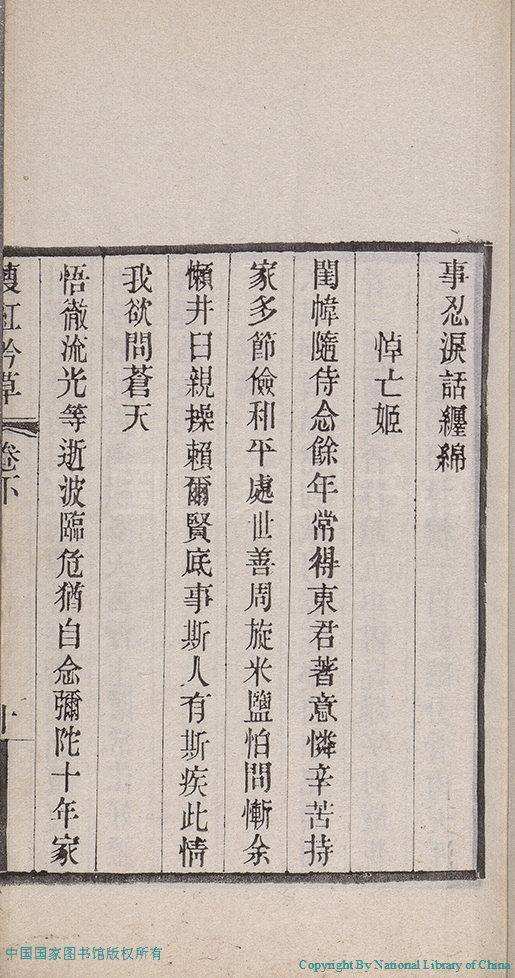 事忍淚話纏綿
悼亡姬
閨幃隨侍念餘年常得東君著意憐辛苦持
家多節儉和平處世善周旋米鹽怕問慚余
懶井臼親操賴爾賢底事斯人有斯疾此情
我欲問蒼天
悟徹流光等逝波臨危猶自念彌陀十年家
紅吟草 卷下
中国国家图书馆版权所有
Copyright By National Library of China